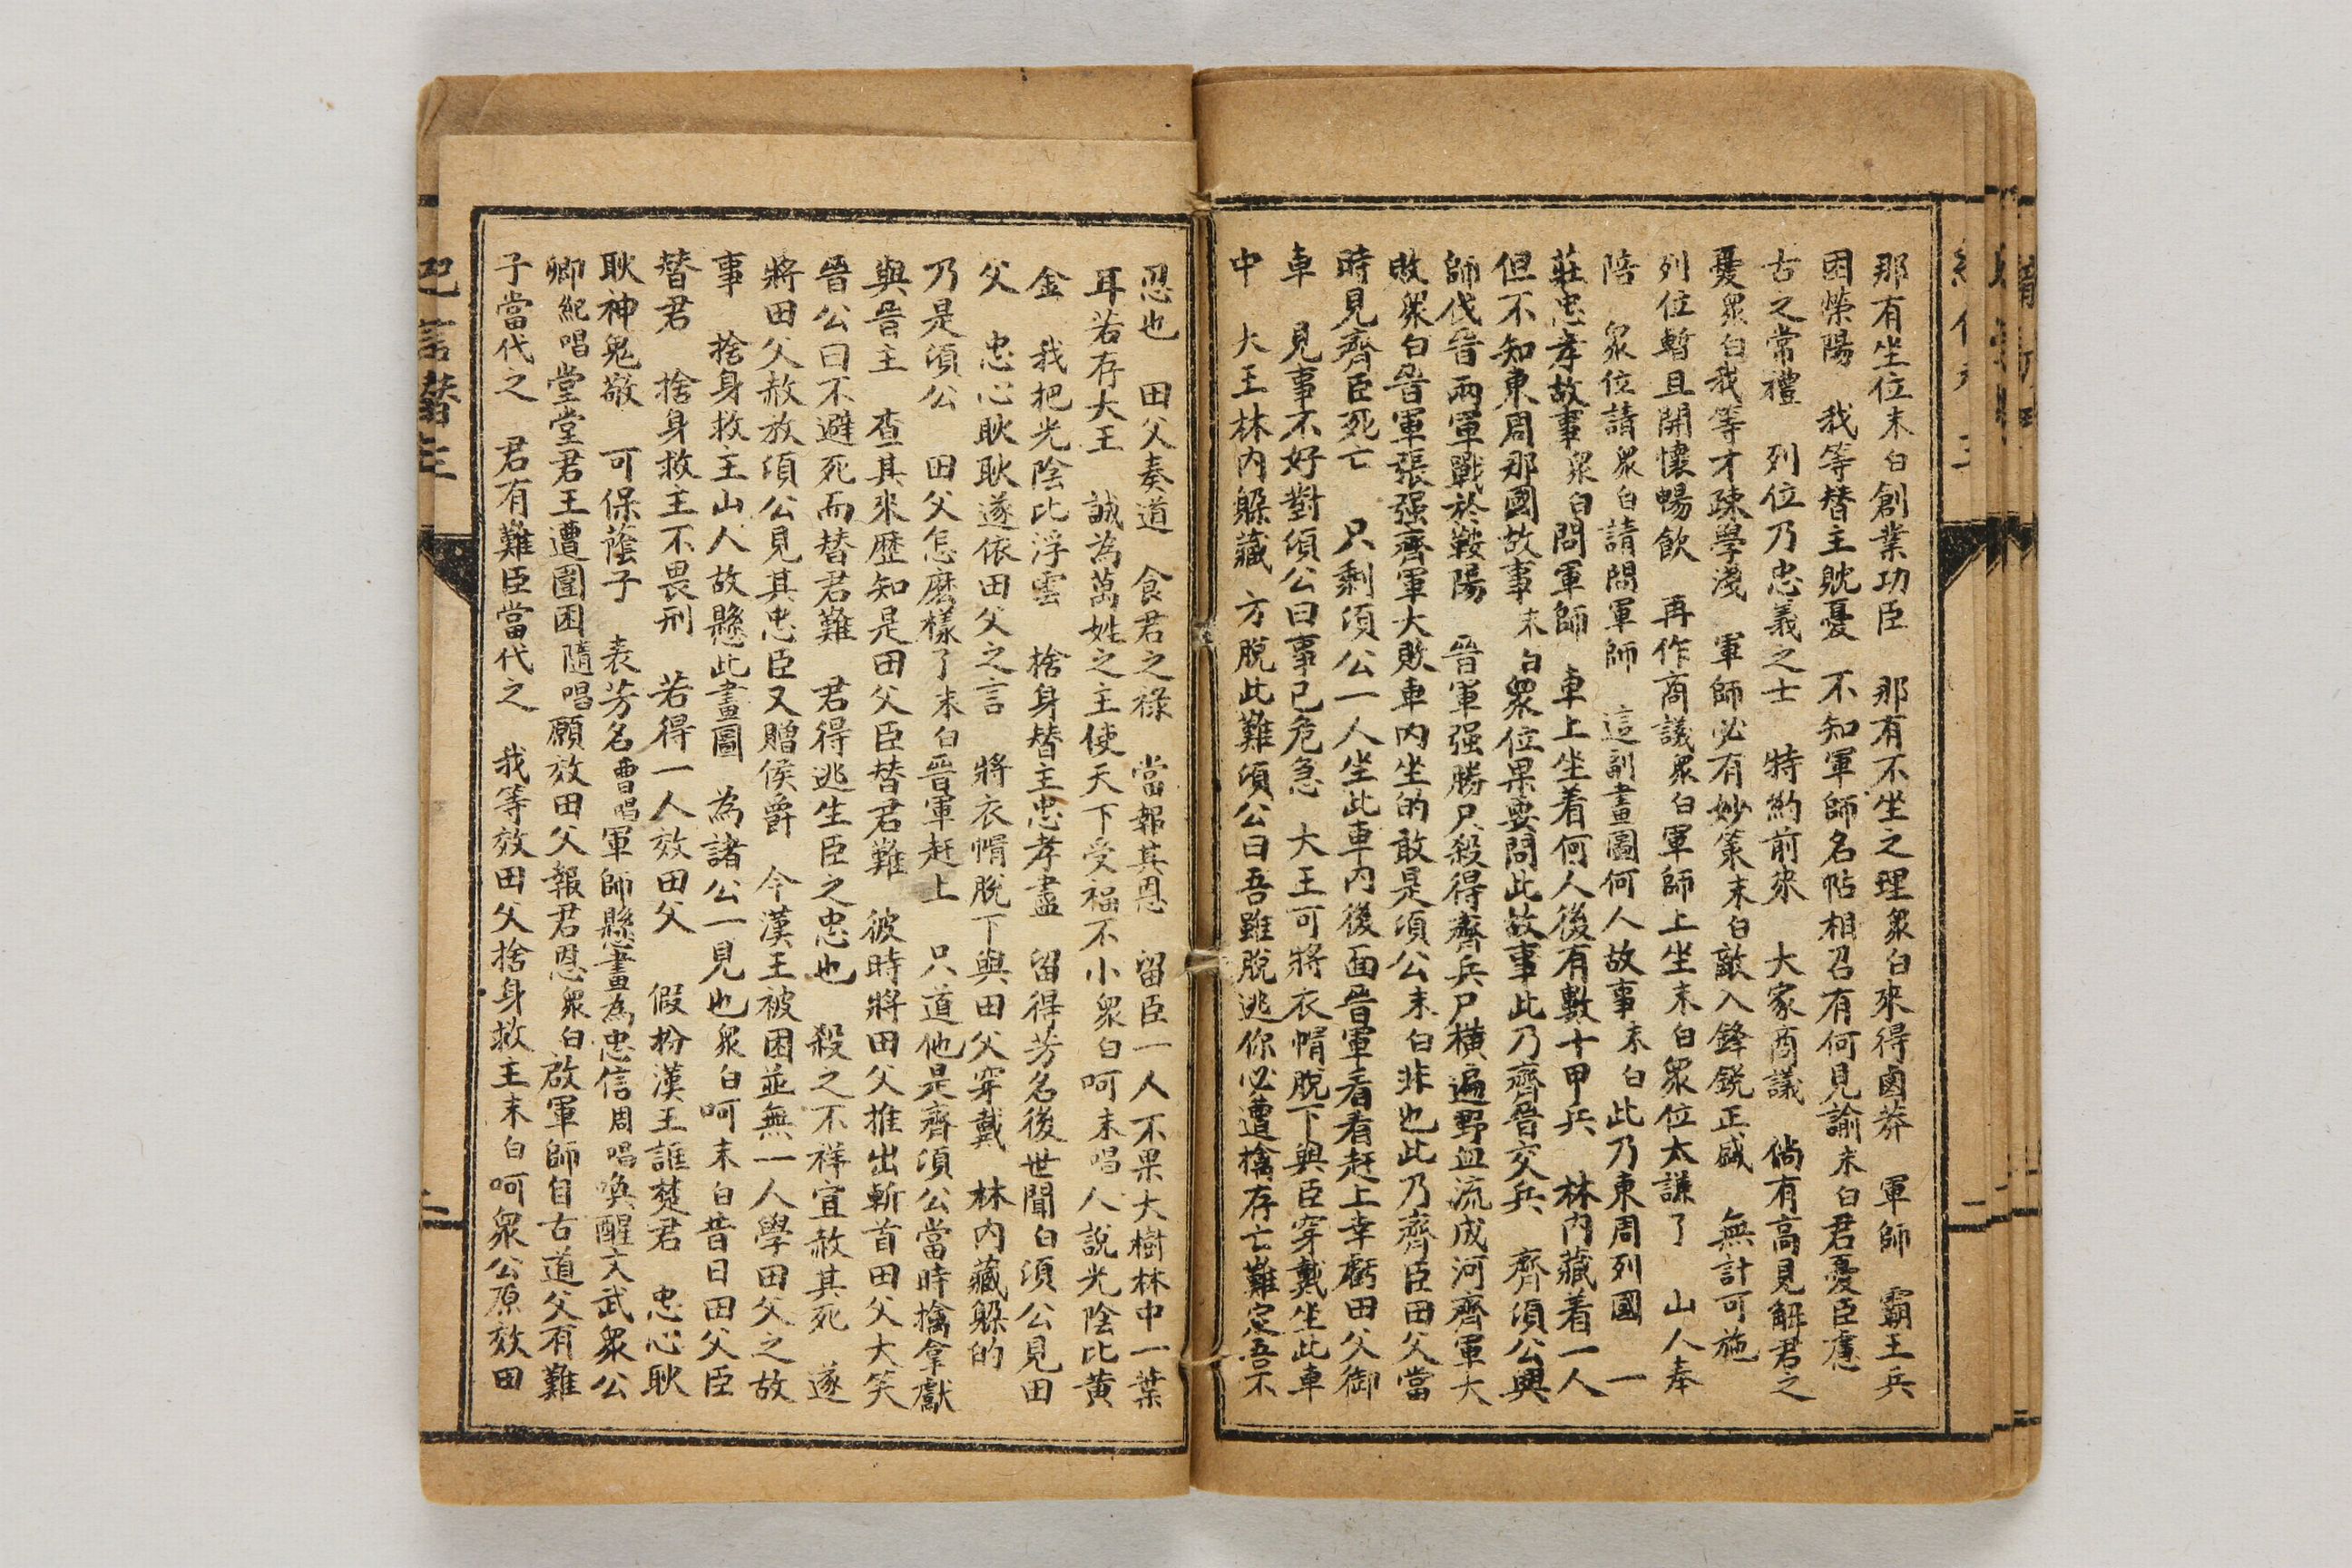 那有坐位末白創業功臣　那有不坐之理衆白來得鹵莽　軍師　霸王兵
困滎陽　我等替主躭憂　不知軍師名帖相召有何見諭末白君憂臣慮
古之常禮　列位乃忠義之士　特約前來　大家商議　倘有高見解君之
憂衆白我等才疎學淺　軍師必有妙策末白敵人鋒銳正盛　無計可施
列位暫且開懷暢飲　再作商議衆白軍師上坐末白衆位太謙了　山人奉
陪　衆位請衆白請問軍師　這訓畫圖何人故事末白此乃東周列國　一
莊忠孝故事衆白問軍師　車上坐着何人後有數十甲兵　林內藏着一人
但不知東周那國故事末白衆位果要問此故事此乃齊晉交兵　齊須公興
師伐晉兩軍戰於鞍陽　晉軍强勝只殺得齊兵尸橫遍野血流成河齊軍大
敗衆白晉軍張强齊軍大敗車內坐的敢是須公末白非也此乃齊臣田父當
時見齊臣死亡　只剩須公一人坐此車內後面晉軍看看赶上幸虧田父御
車　見事不好對須公曰事已危急　大王可將衣帽脫下與臣穿戴坐此車
中　大王林內躲藏　方脫此難須公曰吾雖脫逃你必遭擒存亡難定吾不
忍也　田父奏道　食君之祿　當報其恩　留臣一人不果大樹林中一葉
耳若存大王　誠為萬姓之主使天下受福不小衆白呵末唱人說光陰比黄
金　我把光陰比浮雲　捨身替主忠孝盡　留得芳名後世聞白須公見田
父　忠心耿耿遂依田父之言　將衣帽脫下與田父穿戴　林內藏躲的
乃是須公　田父怎麽樣了末白晉軍赶上　只道他是齊須公當時擒拿獻
與晉主　查其來歷知是田父臣替君難　彼時將田父推出斬首田父大笑
晉公曰不避死而替君難　君得逃生臣之忠也　殺之不祥宜赦其死　遂
將田父赦放須公見其忠臣又贈侯爵　今漢王被困並無一人學田父之故
事　捨身救主山人故懸此畫圖　為諸公一見也衆白呵末白昔日田父臣
替君　捨身救主不畏刑　若得一人效田父　假扮漢王誆楚君　忠心耿
耿神鬼敬　可保蔭子　表芳名曹唱軍師懸畫為忠信周唱喚醒文武衆公
卿紀唱堂堂君王遭圍困隨唱願效田父報君恩衆白啟軍師自古道父有難
子當代之　君有難臣當代之　我等效田父捨身救主末白呵衆公原效田